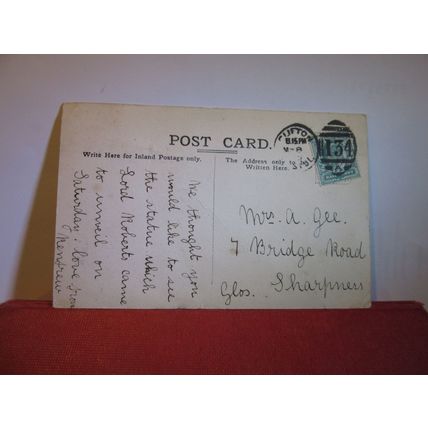 POST CARD.
Write Here for Inland Postage only.
The Address only to be
Written Here.
CLIFTON
8.15 PM
134
We thought you
would like to see
the statue which
Lord Roberts came
to unveil on
Saturday. love from
Mrs. A. Gee.
7 Bridge Road
Sharpness
Glos.